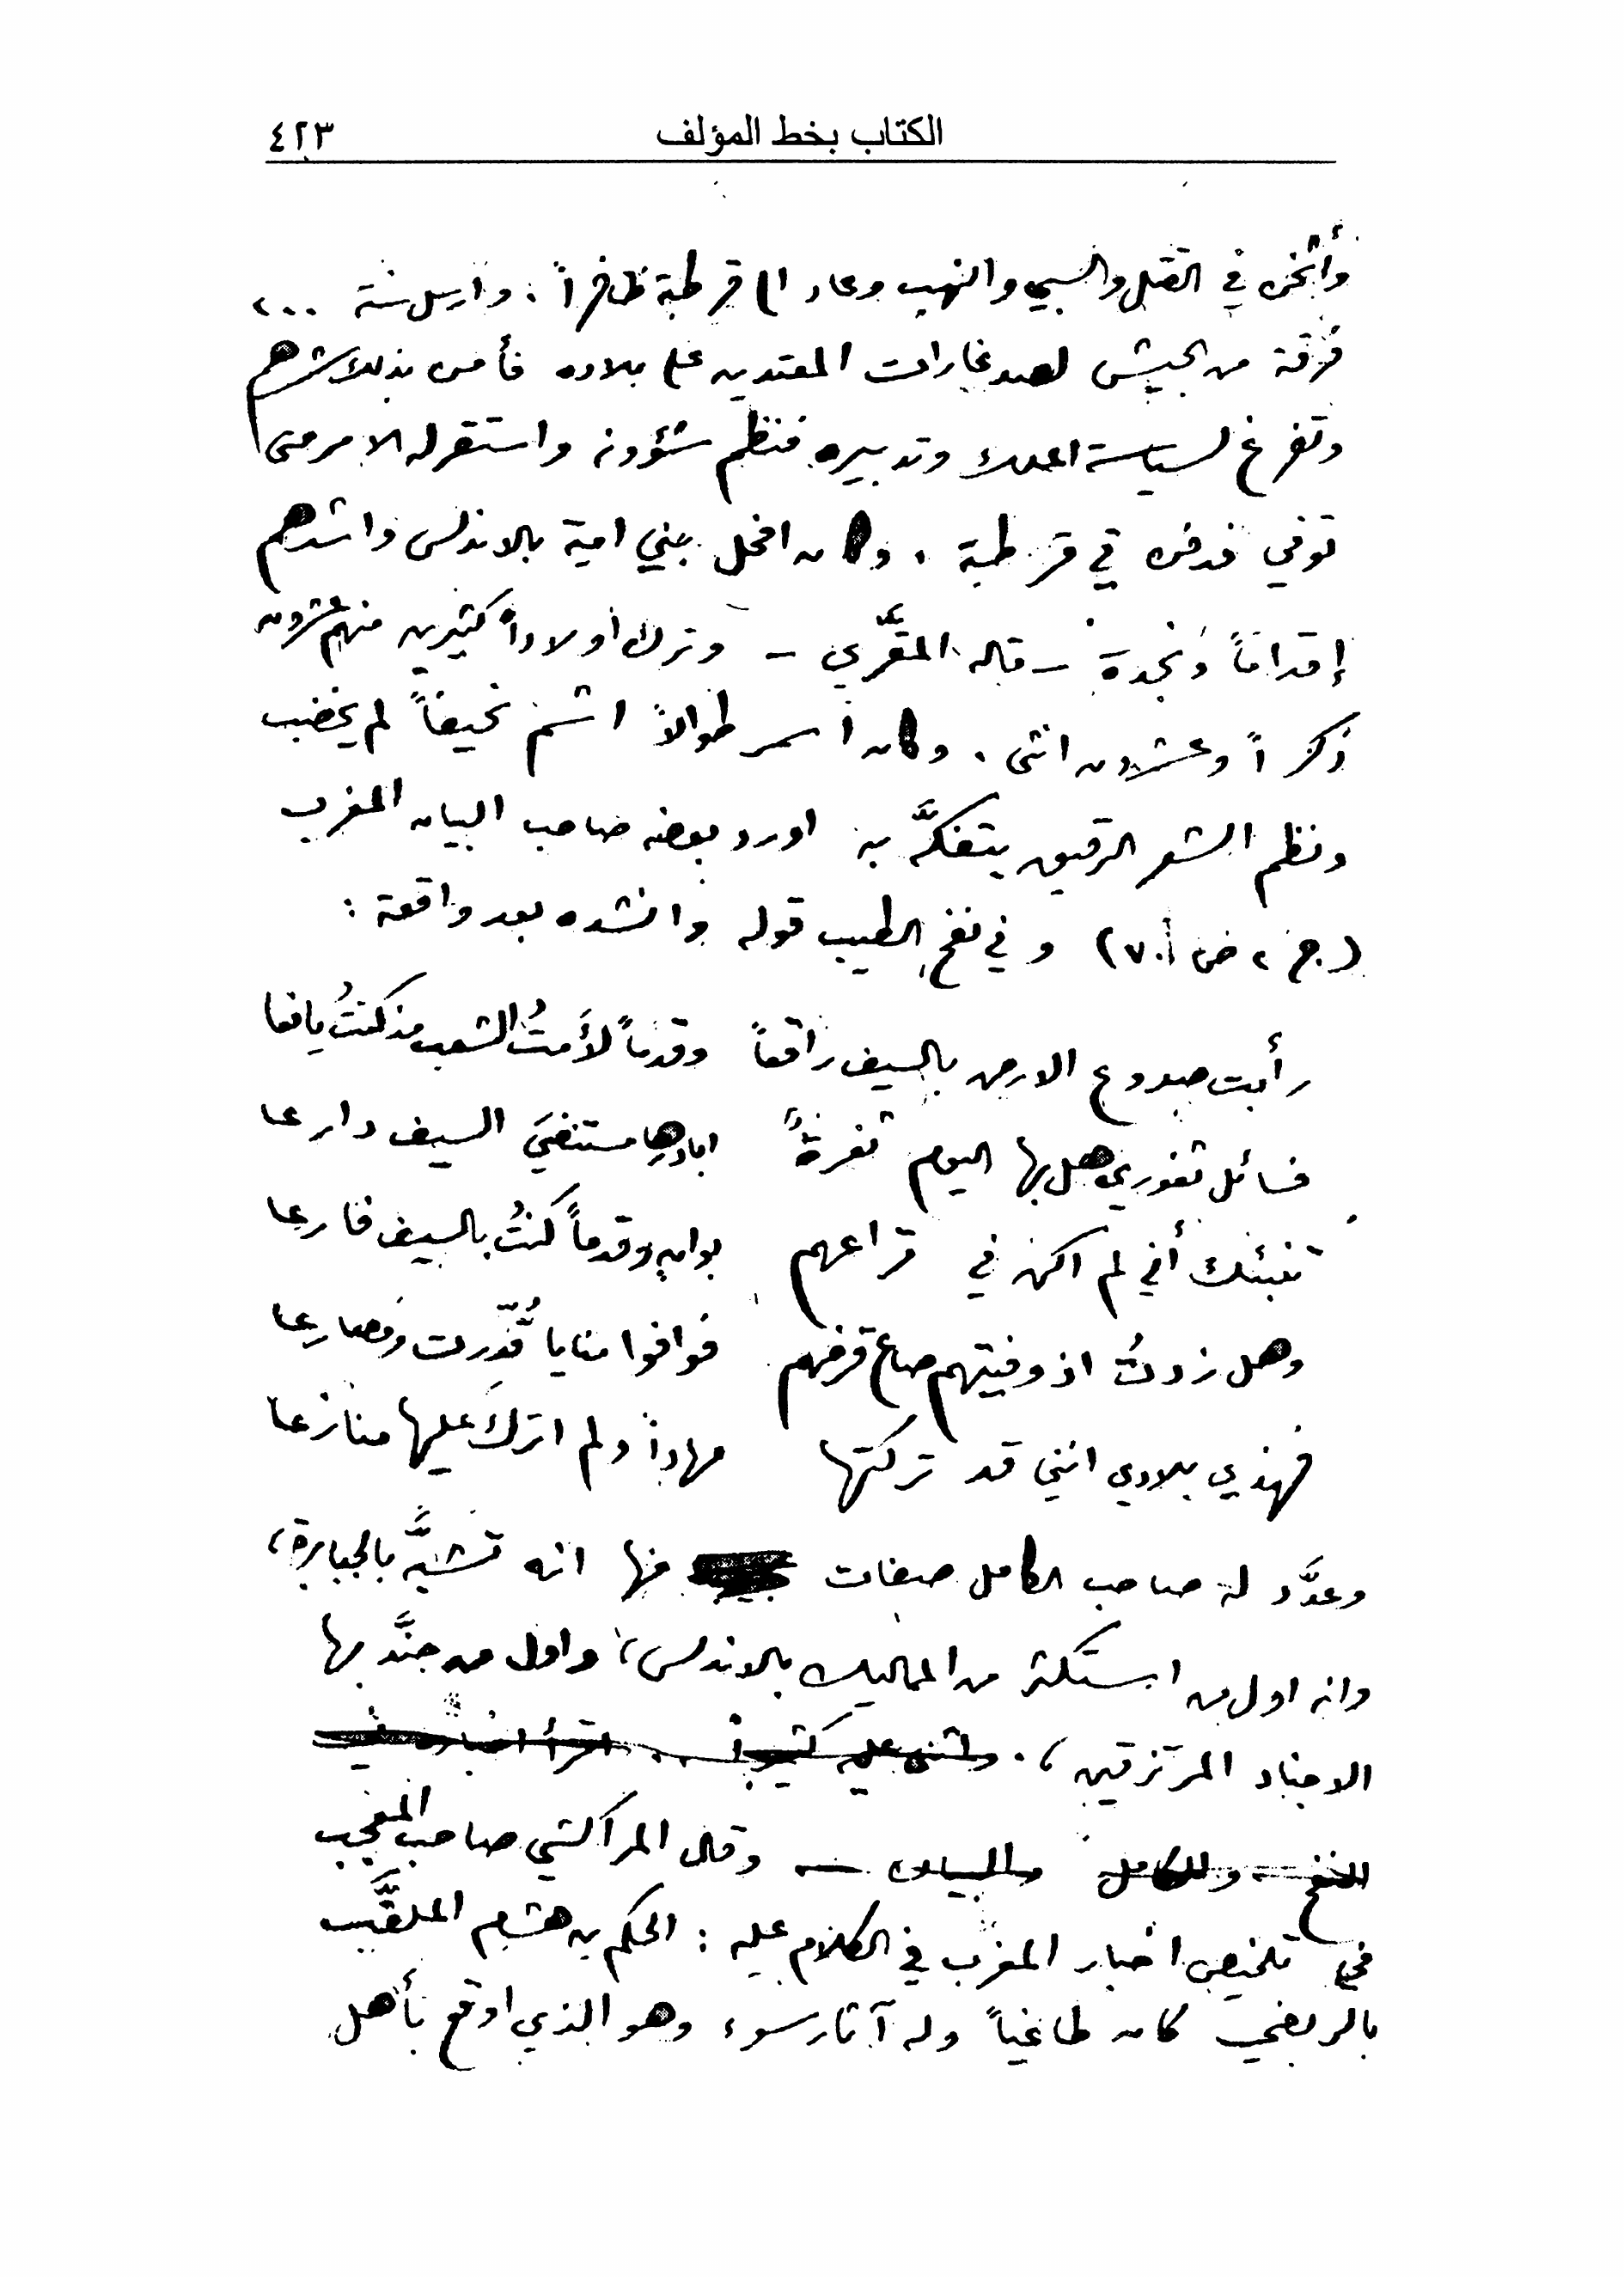 الكتاب بخط المؤلف ٤٢٣
وأثخن في القتل والسبي والنهب وعاد الى قرطبة ظافراً. وارسل سنة ٢٠٠
فرقة من الجيش لصد غارات المعتدين على بلاده فأمن بذلك شرهم
وتفرغ لسياسة الملك وتدبيره فنظم شؤونه واستقر له الامر حتى
توفي فدفن في قرطبة. وكان افحل بني امية بالاندلس واشدهم
إقداماً ونجدة – قاله المقّري – وترك اولاداً كثيرين منهم عشرون
ذكراً وعشرون انثى. وكان اسمر طوالاً اشم نحيفاً لم يخضب
ونظم الشعر الرقيق يتفكَّه به اورد بعضه صاحب البيان المغرب
(ج ٢ ص ٧٠) وفي نفح الطيب قوله وانشده بعد واقعة:
رأبت صدوع الارض بالسيف راقعاً وقدماً لأمتُ الشعب مذ كنتُ يافعا
فسائل ثغوري هل بها اليوم ثغرةً ابادرها مستنضيَ السيف دارعا
تنبئك أني لم اكن في قراعهم بوانٍ وقدماً كنتُ بالسيف قارعا
وهل زدتُ اذ وفيتهم صاع قرضهم فوافوا منايا قُدّرت ومصارعا
فهذي بلادي انني قد تركتها مهاداً ولم اترك عليها منازعا
وعدَّد له صاحب الكامل صفات منها انه تشبَّه بالجبابرة،
وانه اول من استكثر من المماليك بالاندلس، واول من جنَّد بها
الاجناد المرتزقين، واثنى عليه كثيراً .. اقرأ اخباره في
النفح والكامل والبيان – وقال المراكشي صاحب المعجب
في تلخيص اخبار المغرب في الكلام عليه: الحكم بن هشام الملقَّب
بالربضي كان طاغياً وله آثار سوء وهو الذي اوقع بأهل